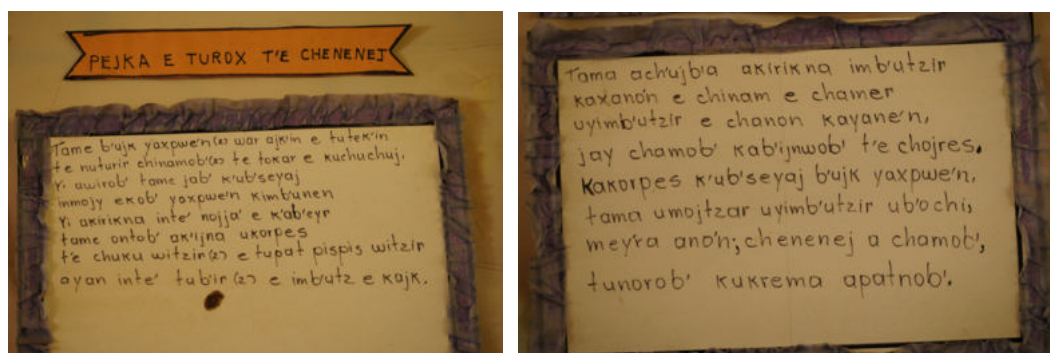 PEJKA E TUROX T'E CHENENEJ
Tame b'ujk yaxpwe'n(2) war ajk'in e tutek'in
te nuturir chinamob'(2) te tokar e kuchuchuj,
Yi awirob' tame jab' k'ub'seyaj
inmojy ekob' yaxpwe'n kimb'unen
Yi akirikna inte' nojja' e k'ab'eyr
tame ontob' ak'ijna ukorpes
t'e chuku witzir(2) e tupat pispis witzir
ayan inte' tub'ir(2) e imb'utz e kajk.
Tama ach'ujb'a akirikna imb'utzir
kaxano'n e chinam e chamer
uyimb'utzir e chanon kayane'n,
jay chamob' kab'ijnwob' t'e chojres.
Kakorpes k'ub'seyaj b'ujk yaxpwe'n,
tama umojtzar uyimb'utzir ub'ochi,
mey'ra ano'n; chenenej a chamob',
tunorob' kukrema apatnob'.